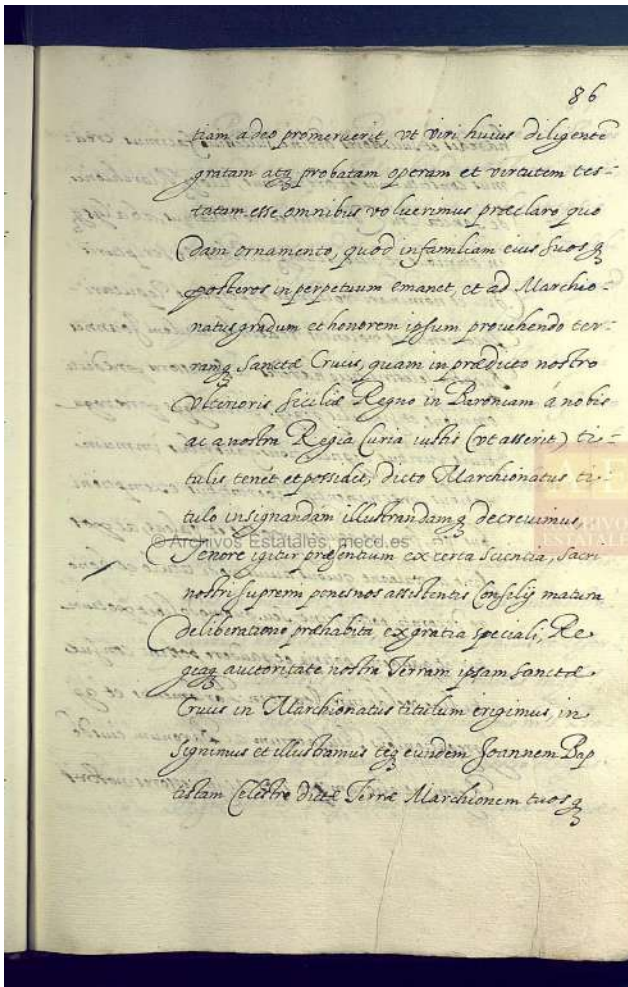 86
tiam adeo promeruerit, vt viri huius diligentē
gratam atq₃ probatam operam et virtutem tes-
tatam esse omnibus voluerimus præclaro quo
dam ornamento, quod in familiam eius suosq₃
posteros in perpetuum emanet, et ad Marchio-
natus gradum et honorem ipsum prouehendo ter-
ramq₃ Sanctæ Crucis, quam in prædicto nostro
Vlterioris Siciliæ Regno in Baroniam á nobis
ac a nostra Regia Curia iustis (vt asserit) ti-
tulis tenet et possidet, dicto Marchionatus ti-
tulo insignandam illustrandamq₃ decreuimus,
© Archivos Estatales, mecd.es
Tenore igitur præsentium ex certa scientia, sacri
nostri supremi penes nos assistentis Consilij matura
deliberatione præhabita, ex gratia speciali, Re
giaq₃ auctoritate nostra Terram ipsam Sanctæ
Crucis in Marchionatus titulum erigimus, in
signimus et illustramus teq₃ eundem Joannem Bap
tistam Celestre dictæ Terræ Marchionem tuosq₃